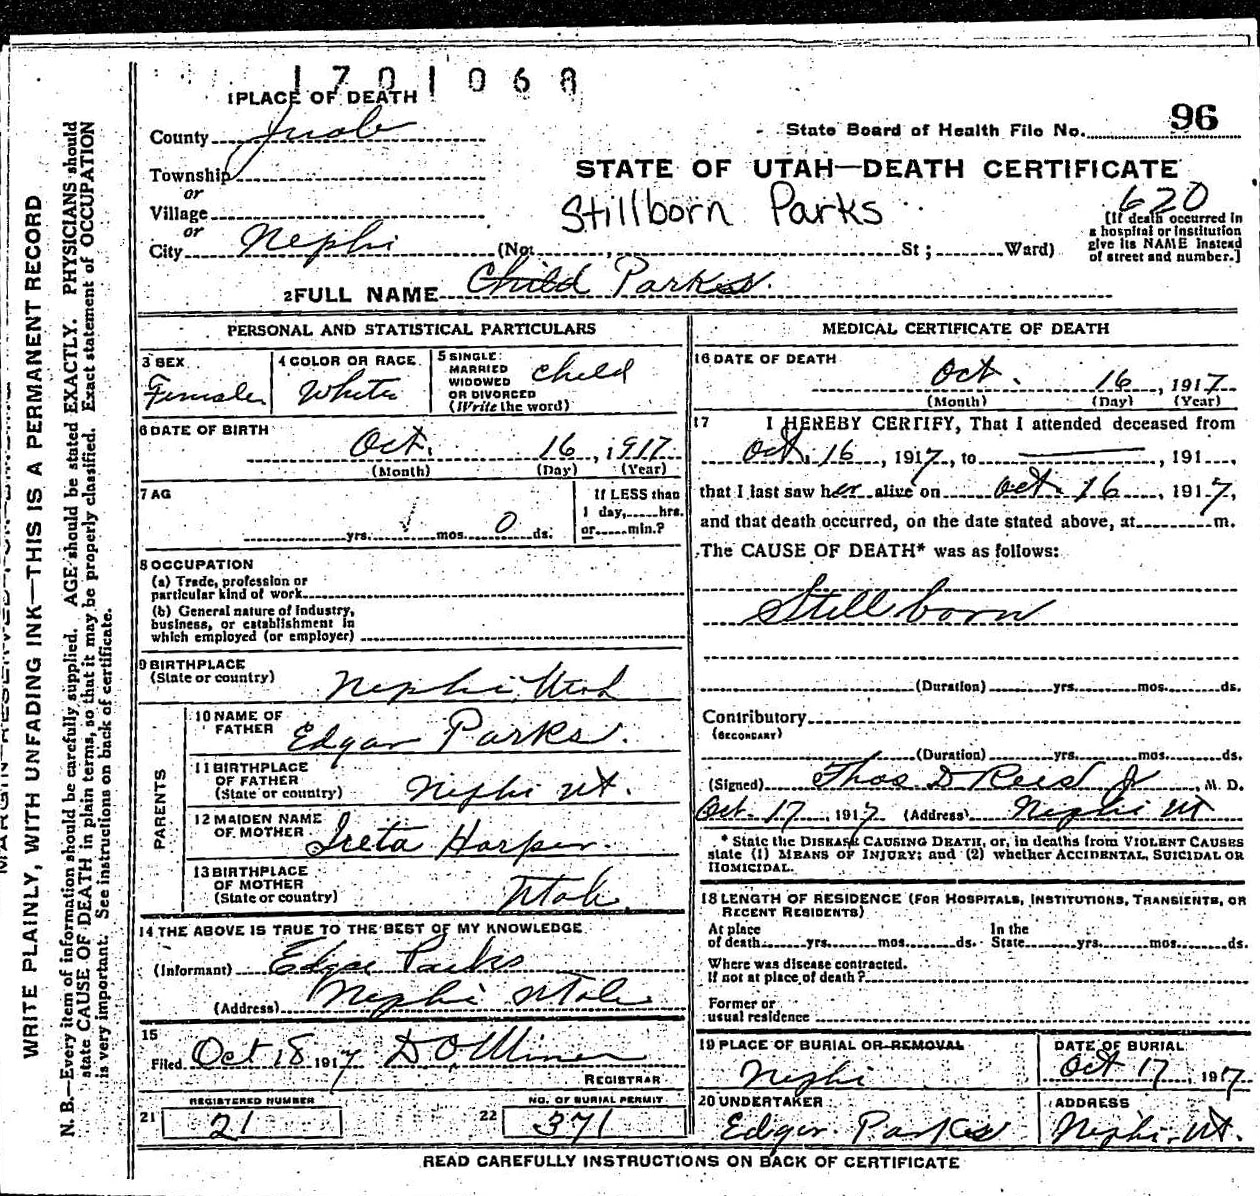 1701068
1 PLACE OF DEATH
County Juab
State Board of Health File No. 96
Township
or
Village
or
City Nephi (No. St; Ward)
STATE OF UTAH—DEATH CERTIFICATE
Stillborn Parks
620
[If death occurred in
a hospital or institution
give its NAME instead
of street and number.]
2 FULL NAME Child Parks.
PERSONAL AND STATISTICAL PARTICULARS
3 SEX
Female
4 COLOR OR RACE
White
5 SINGLE
MARRIED
WIDOWED
OR DIVORCED
(Write the word)
child
6 DATE OF BIRTH
Oct. 16, 1917
(Month) (Day) (Year)
7 AG
yrs. mos. 0 ds.
If LESS than
1 day, hrs.
or min.?
8 OCCUPATION
(a) Trade, profession or
particular kind of work
(b) General nature of Industry,
business, or establishment in
which employed (or employer)
9 BIRTHPLACE
(State or country)
Nephi, Utah
PARENTS
10 NAME OF
FATHER
Edgar Parks.
11 BIRTHPLACE
OF FATHER
(State or country)
Nephi Ut.
12 MAIDEN NAME
OF MOTHER
Ireta Harper.
13 BIRTHPLACE
OF MOTHER
(State or country)
Utah.
14 THE ABOVE IS TRUE TO THE BEST OF MY KNOWLEDGE
(Informant) Edgar Parks
(Address) Nephi Utah
15
Filed Oct 18 1917 D O Miner
REGISTRAR
21 REGISTERED NUMBER
21
22 NO. OF BURIAL PERMIT
371
MEDICAL CERTIFICATE OF DEATH
16 DATE OF DEATH
Oct. 16, 1917
(Month) (Day) (Year)
17 I HEREBY CERTIFY, That I attended deceased from
Oct. 16, 1917, to , 191
that I last saw her alive on Oct. 16, 1917,
and that death occurred, on the date stated above, at m.
The CAUSE OF DEATH* was as follows:
Still born
(Duration) yrs. mos. ds.
Contributory
(SECONDARY)
(Duration) yrs. mos. ds.
(Signed) Thos. D Rees Jr, M. D.
Oct. 17, 1917 (Address) Nephi Ut
* State the DISEASE CAUSING DEATH, or, in deaths from VIOLENT CAUSES
state (1) MEANS OF INJURY; and (2) whether ACCIDENTAL, SUICIDAL OR
HOMICIDAL.
18 LENGTH OF RESIDENCE (FOR HOSPITALS, INSTITUTIONS, TRANSIENTS, OR
RECENT RESIDENTS)
At place
of death yrs. mos. ds.
In the
State yrs. mos. ds.
Where was disease contracted.
If not at place of death?
Former or
usual residence
19 PLACE OF BURIAL OR REMOVAL
Nephi
DATE OF BURIAL
Oct 17, 1917
20 UNDERTAKER
Edgar Parks
ADDRESS
Nephi, Ut.
READ CAREFULLY INSTRUCTIONS ON BACK OF CERTIFICATE
WRITE PLAINLY, WITH UNFADING INK—THIS IS A PERMANENT RECORD
N. B.—Every item of information should be carefully supplied. AGE should be stated EXACTLY. PHYSICIANS should
state CAUSE OF DEATH in plain terms, so that it may be properly classified. Exact statement of OCCUPATION
is very important. See instructions on back of certificate.